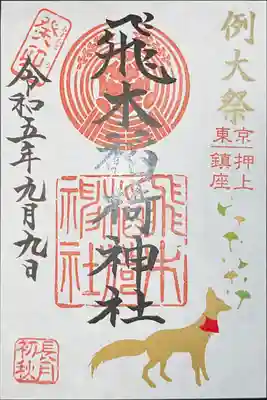 例大祭
東京押上
鎮座
飛木稲荷神社
令和五年九月九日
飛木稲荷神社
長月
初秋